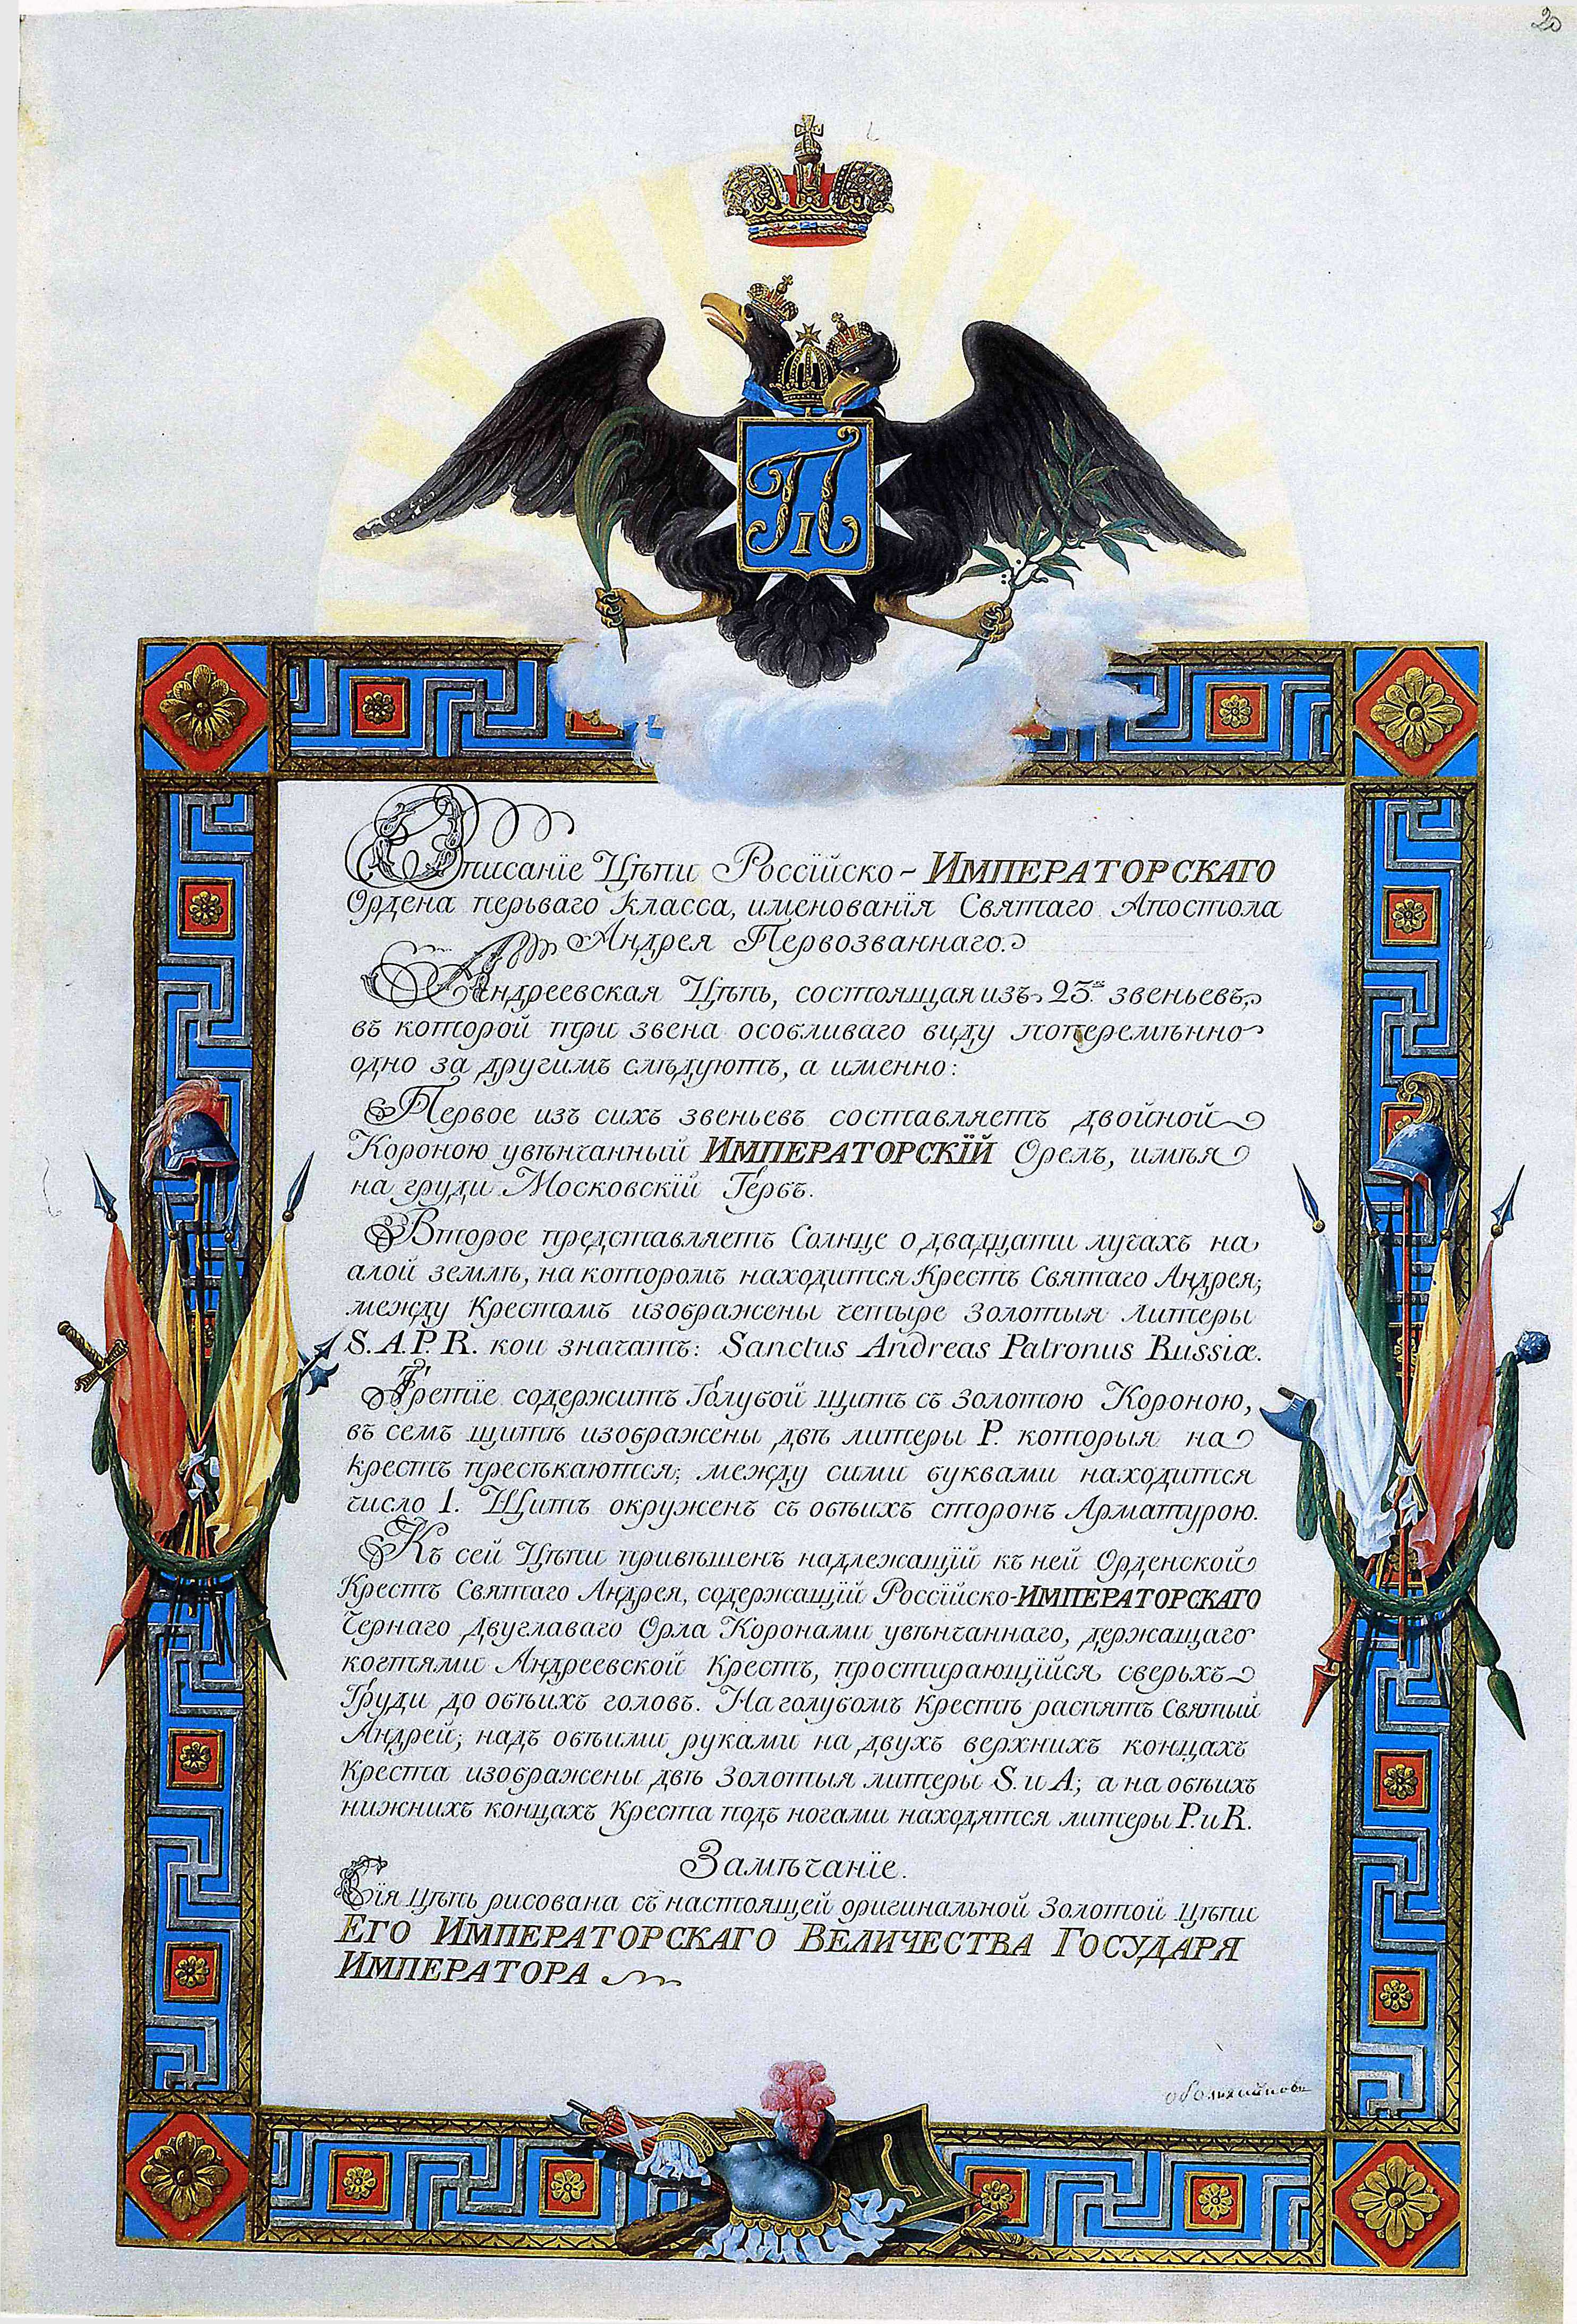 20
П I
Описанїе Цѣпи Россїйско-ИМПЕРАТОРСКАГО
Ордена перьваго класса, именованїя Святаго Апостола
Андрея Первозваннаго.
Андреевская Цѣпь, состоящая изъ 23.хъ звеньевъ,
въ которой три звена особливаго виду поперемѣнно
одно за другимъ слѣдуютъ, а именно:
Первое изъ сихъ звеньевъ составляетъ двойной
Короною увѣнчанный ИМПЕРАТОРСКЇЙ Орелъ, имѣя
на груди Московскїй Гербъ.
Второе представляетъ Солнце о двадцати лучахъ на
алой землѣ, на которомъ находится Крестъ Святаго Андрея;
между Крестомъ изображены четыре золотыя литеры
S. A. P. R. кои значатъ: Sanctus Andreas Patronus Russiæ.
Третїе содержитъ Голубой щитъ съ золотою Короною,
въ семъ щитѣ изображены двѣ литеры Р. которыя на
крестъ пресѣкаются; между сими буквами находится
число 1. Щитъ окруженъ съ обѣихъ сторонъ Арматурою.
Къ сей Цѣпи привѣшенъ надлежащїй къ ней Орденской
Крестъ Святаго Андрея, содержащїй Россїйско-ИМПЕРАТОРСКАГО
Чернаго Двуглаваго Орла Коронами увѣнчаннаго, держащаго
когтями Андреевской Крестъ, простирающїйся сверьхъ
Груди до обѣихъ головъ. На голубомъ Крестѣ распятъ Святый
Андрей; надъ обѣими руками на двухъ верхнихъ концахъ
Креста изображены двѣ золотыя литеры S. и A; а на обѣихъ
нижнихъ концахъ Креста подъ ногами находятся литеры P. и R.
Замѣчанїе.
Сїя цѣпь рисована съ настоящей оригинальной Золотой цѣпи
ЕГО ИМПЕРАТОРСКАГО ВЕЛИЧЕСТВА ГОСУДАРЯ
ИМПЕРАТОРА